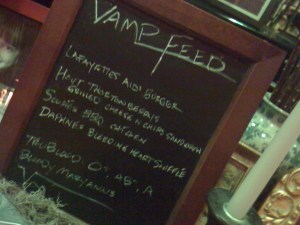 VAMP FEED
LAFAYETTES AIDS BURGER
HOYT
GRILLED CHEESE N CHIPS SANDWICH
BBQ CHICKEN
DAPHNE'S BLEEDING HEART SOUFFLE
TRU BLOOD O-, AB-, A
BLOODY MARYANNS